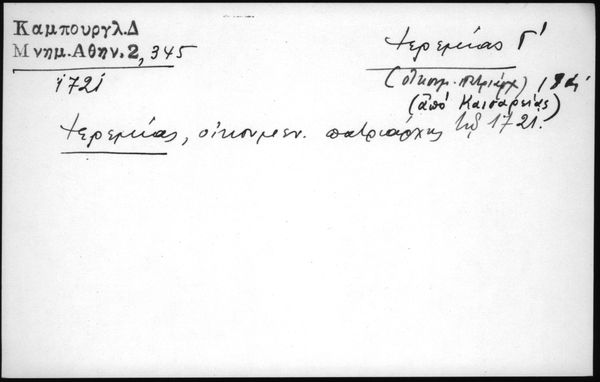 Καμπουργλ.Δ
Μνημ.Αθην.2, 345
1721
Ἱερεμίας Γ'
(οἰκουμ. πατριάρχ)
(ἀπό Καισαρείας)
Ἱερεμίας, οἰκουμεν. πατριάρχης τῷ 1721.